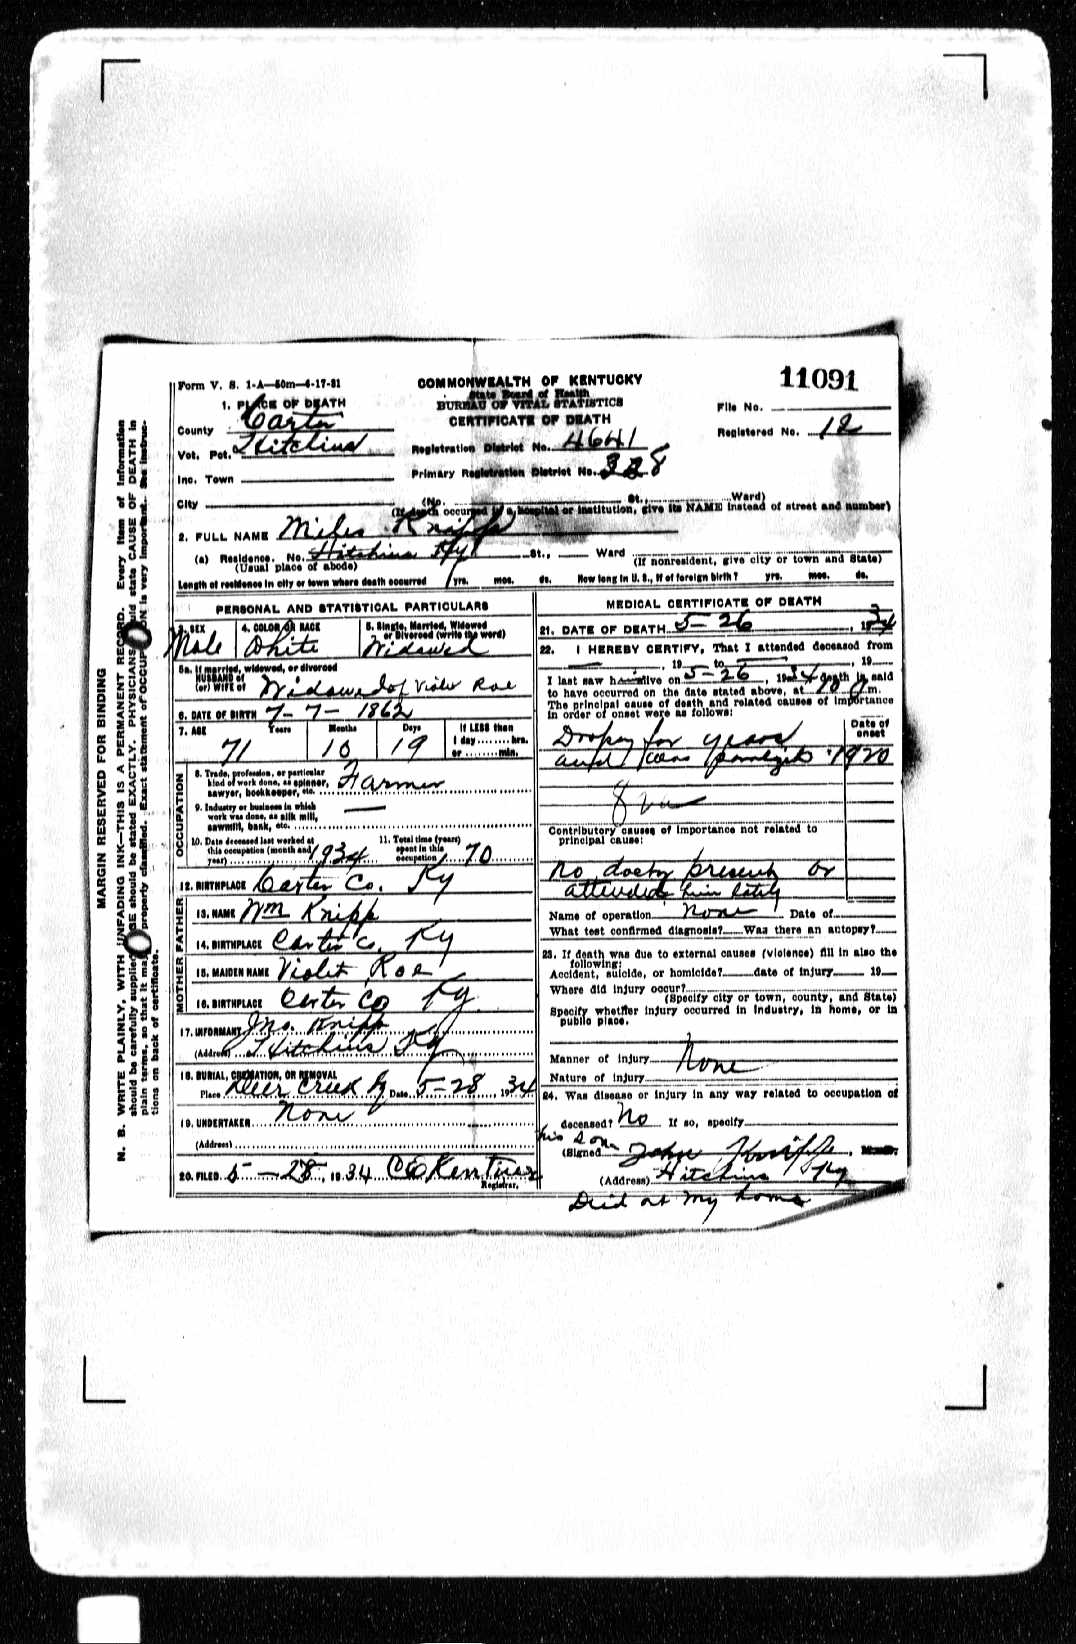 Form V. S. 1-A—50m—4-17-31
COMMONWEALTH OF KENTUCKY
State Board of Health
BUREAU OF VITAL STATISTICS
CERTIFICATE OF DEATH
11091
File No.
Registered No. 12
1. PLACE OF DEATH
County Carter
Vot. Pct. Hitchins
Inc. Town
City
Registration District No. 4641
Primary Registration District No. 328
(No. St., Ward)
(If death occurred in a hospital or institution, give its NAME instead of street and number)
2. FULL NAME Miles Knipp
(a) Residence. No. Hitchins Ky St., Ward
(Usual place of abode) (If nonresident, give city or town and State)
Length of residence in city or town where death occurred yrs. mos. ds. How long in U. S., if of foreign birth? yrs. mos. ds.
PERSONAL AND STATISTICAL PARTICULARS
3. SEX Male
4. COLOR OR RACE White
5. Single, Married, Widowed or Divorced (write the word) Widowed
5a. If married, widowed, or divorced
HUSBAND of
(or) WIFE of Widowed of Violet Roe
6. DATE OF BIRTH 7-7-1862
7. AGE Years Months Days If LESS than
71 10 19 1 day hrs.
or min.
OCCUPATION
8. Trade, profession, or particular
kind of work done, as spinner,
sawyer, bookkeeper, etc. Farmer
9. Industry or business in which
work was done, as silk mill,
sawmill, bank, etc.
10. Date deceased last worked at
this occupation (month and
year) 1934
11. Total time (years)
spent in this
occupation 70
12. BIRTHPLACE Carter Co. Ky
FATHER
13. NAME Wm Knipp
14. BIRTHPLACE Carter Co. Ky
MOTHER
15. MAIDEN NAME Violet Roe
16. BIRTHPLACE Carter Co Ky
17. INFORMANT Jno. Knipp
(Address) Hitchins Ky
18. BURIAL, CREMATION, OR REMOVAL
Place Deer Creek Ky Date 5-28, 1934
19. UNDERTAKER None
(Address)
20. FILED 5-28, 1934
Registrar.
MEDICAL CERTIFICATE OF DEATH
21. DATE OF DEATH 5-26, 1934
22. I HEREBY CERTIFY, That I attended deceased from
, 19 to , 19
I last saw h alive on 5-26, 1934 death is said
to have occurred on the date stated above, at m.
The principal cause of death and related causes of importance
in order of onset were as follows:
Date of onset
Dropsy for years
and was 1920
Contributory causes of importance not related to
principal cause:
No doctor present or
attended him lately
Name of operation None Date of
What test confirmed diagnosis? Was there an autopsy?
23. If death was due to external causes (violence) fill in also the
following:
Accident, suicide, or homicide? date of injury 19
Where did injury occur?
(Specify city or town, county, and State)
Specify whether injury occurred in industry, in home, or in
public place.
Manner of injury None
Nature of injury
24. Was disease or injury in any way related to occupation of
deceased? No If so, specify
his son
(Signed John Knipp
(Address) Hitchins Ky
Died at my home
MARGIN RESERVED FOR BINDING
N. B. WRITE PLAINLY, WITH UNFADING INK—THIS IS A PERMANENT RECORD. Every item of information
should be carefully supplied. AGE should be stated EXACTLY. PHYSICIANS should state CAUSE OF DEATH in
plain terms, so that it may be properly classified. Exact statement of OCCUPATION is very important. See instruc-
tions on back of certificate.